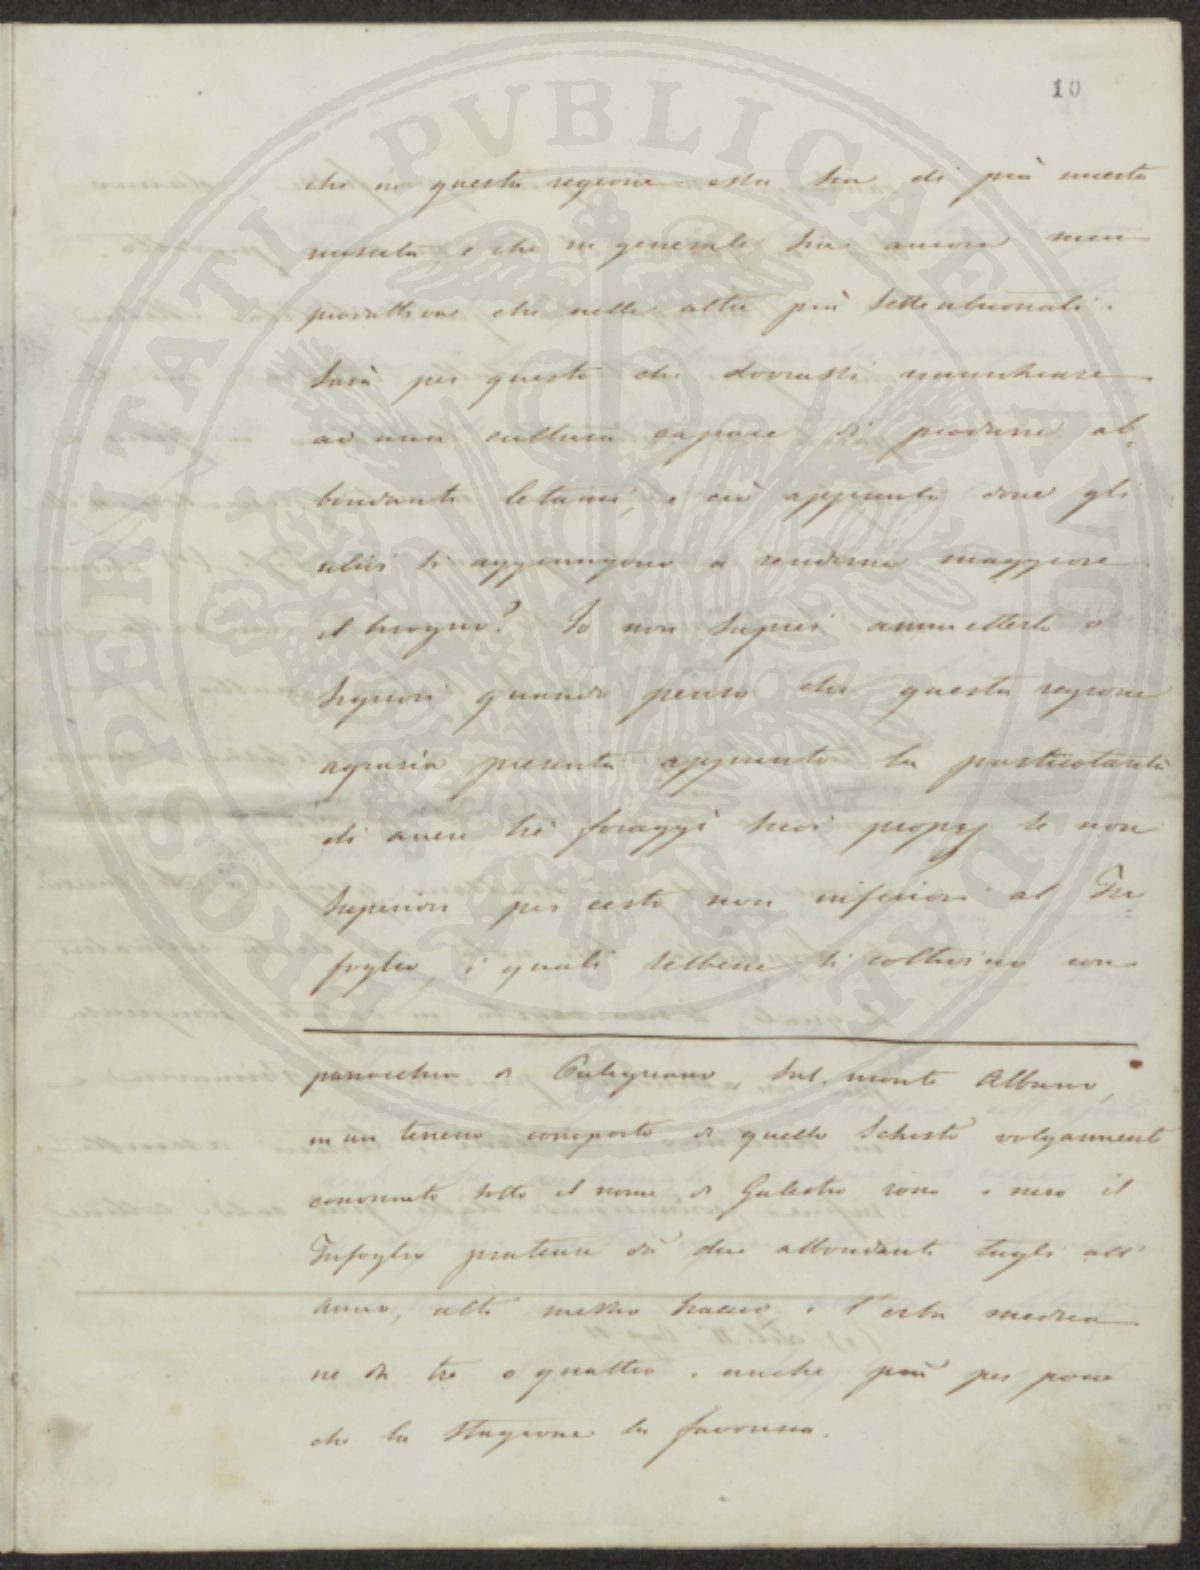 10
che in questa regione essa sia di più incerta
nascita, e che in generale sia ancora men
produttiva che nelle altre più settentrionali.
Sarà per questo che dovrassi rinunciare
ad una cultura capace di produrre ab=
bondanti letami, e ciò appunto dove gli
ulivi si aggiungono a renderne maggiore
il bisogno? Io non saprei ammetterlo o
Signori quando penso che questa regione
agraria presenta appunto la particolarità
di avere trè foraggi suoi proprj se non
superiori per certo non inferiori al Tri=
foglio, i quali sebbene si coltivino con
parrocchia di Carignano, sul monte Albano,
in un terreno composto di quello Schisto volgarmente
conosciuto sotto il nome di Galestro sono e nero il
Trifoglio pratense dà due abbondanti tagli all'
anno, alti mezzo braccio e l'erba medica
ne dà tre o quattro e anche più per poco
che la stagione la favorisca.
PROSPERITATI PVBLICAE AVGENDAE